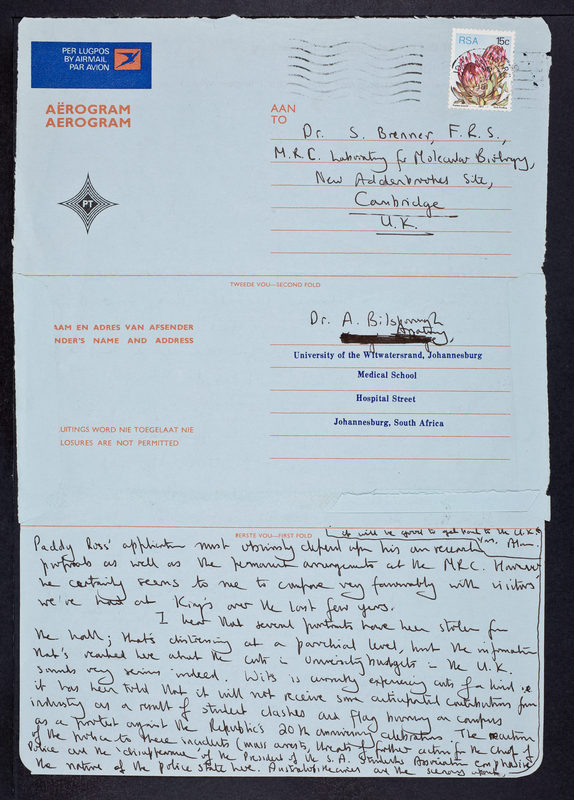 PER LUGPOS
BY AIRMAIL
PAR AVION
RSA 15c
AËROGRAM
AEROGRAM
AAN
TO
Dr. S. Brenner, F.R.S.,
M.R.C. Laboratory for Molecular Biology,
New Addenbrookes Site,
Cambridge
U.K.
PT
TWEEDE VOU—SECOND FOLD
AAM EN ADRES VAN AFSENDER
NDER'S NAME AND ADDRESS
Dr. A. Bilsborough
Anatomy,
University of the Witwatersrand, Johannesburg
Medical School
Hospital Street
Johannesburg, South Africa
UITINGS WORD NIE TOEGELAAT NIE
LOSURES ARE NOT PERMITTED
EERSTE VOU—FIRST FOLD
It will be good to get back to the U.K.
Yrs, Alan
Paddy Ross' application must obviously depend upon his own research
proposals as well as the permanent arrangements at the MRC. However
he certainly seems to me to compare very favourably with visitors
we've had at Kings over the last few years.
I hear that several portraits have been stolen from
the hall; that's distressing at a parochial level, but the information
that's reached here about the cuts in University budgets in the U.K.
sounds very serious indeed. Wits is currently experiencing cuts of a kind i.e.
it has been told that it will not receive some anticipated contributions from
industry as a result of student clashes and flag burning on campus
as a protest against the Republic's 20th anniversary celebrations. The reaction
of the police to these incidents (mass arrests, threats of further action from the Chief of
Police and the 'disappearance' of the President of the S.A. Students Association emphasise
the nature of the police state here. are the